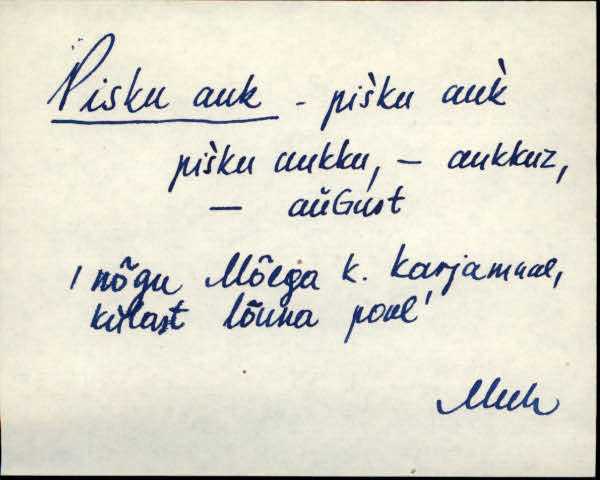 Pisku auk - pišku auk̀
pišku aukku, — aukkuz,
— aŭGust
/ nõgu Mõega k. karjamaal,
külast lõuna pool'